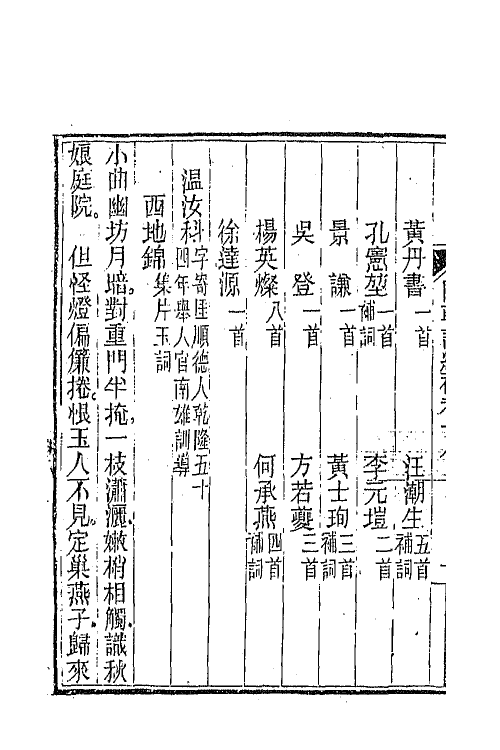 黃丹書一首　汪潮生五首補詞
孔憲堃一首補詞　李元塏二首
景謙一首　黃士珣三首補詞
吳登一首　方若蘷三首
楊英燦八首　何承燕四首補詞
徐達源一首
溫汝科字寄匡順德人乾隆五十四年舉人官南雄訓導
西地錦集片玉詞
小曲幽坊月暗。對重門半掩。一枝瀟灑。嫩梢相觸。識秋
娘庭院。　但怪燈偏簾捲。恨玉人不見。定巢燕子歸來